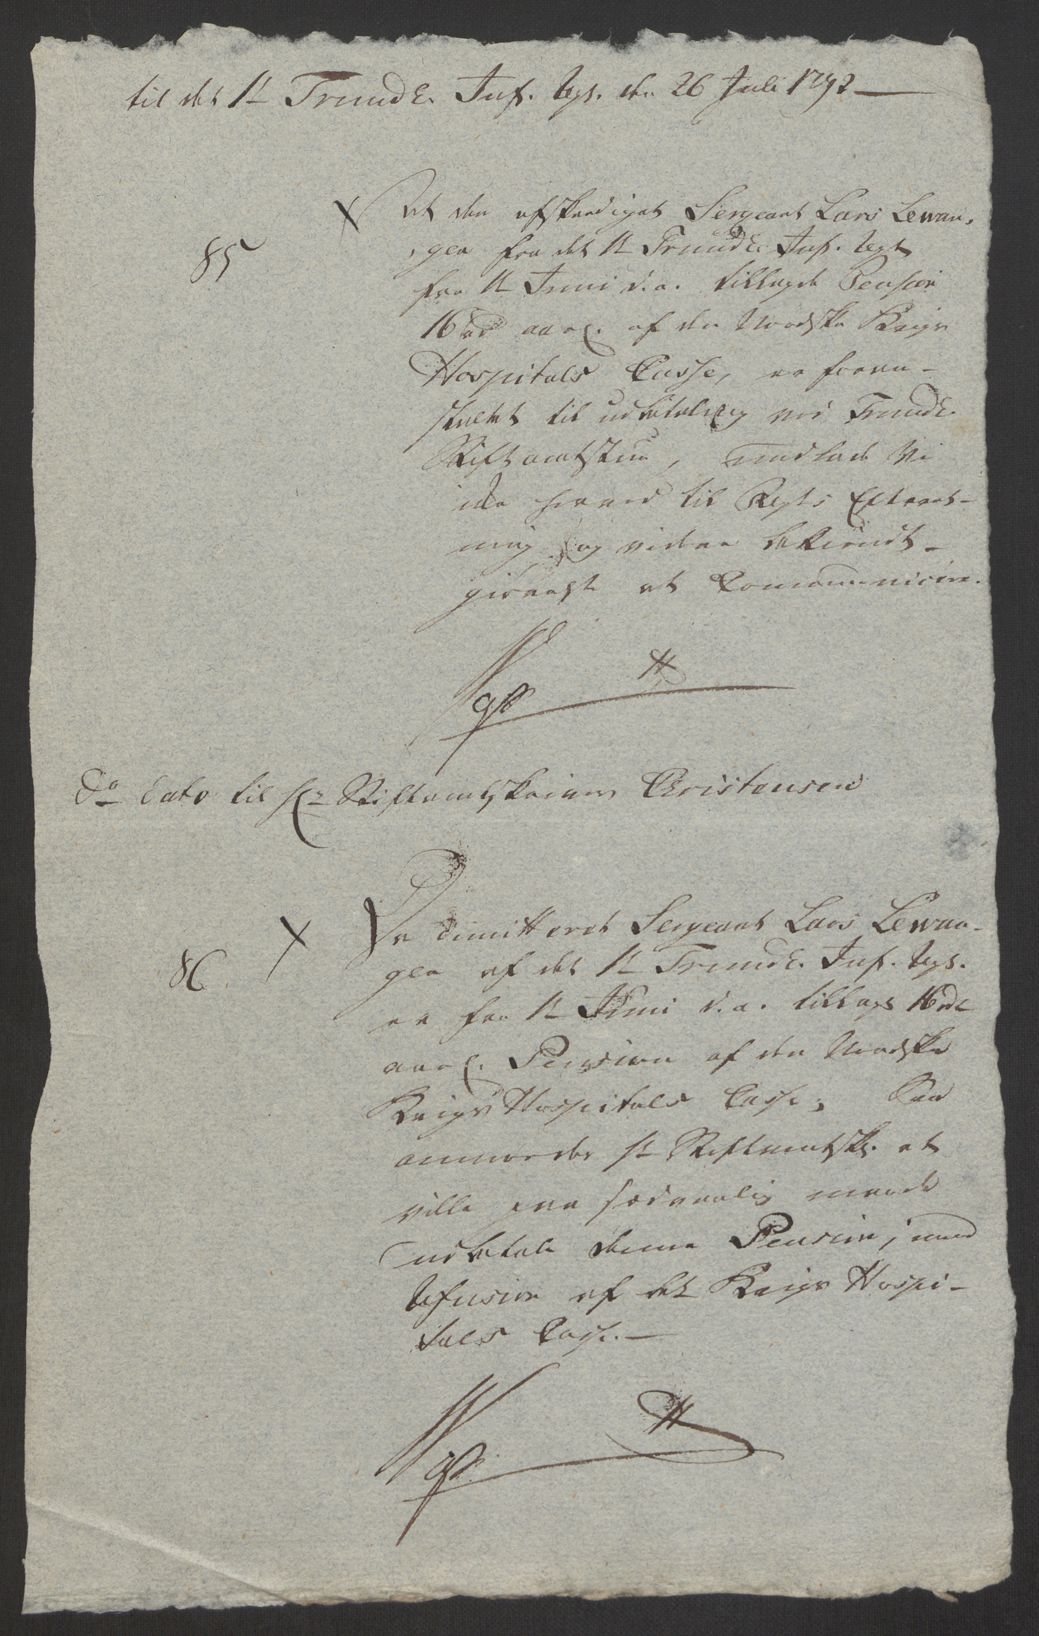 til det 1te Trondh. Inf. Rgt. den 26 Juli 1792
85
At den afskeediget Sergeant Lars Lewan-
gen fra det 1te Trondh. Inf. Regt
fra 1te Juni d.a. tillagde Pension
16 rd aarl. af den Norske Krigs
Hospitals Casse, er foran-
staltet til udbetaling ved Trondh.
Stiftamtstue, undlade Vi
ikke herved til Regts Efterret-
ning og videre bekiendt-
giørelse at Communicere.
Do Dato til Hr Stiftamtskriver Christensen
86
Den dimitteret Sergeant Lars Lewan-
gen af det 1te Trondh. Inf. Rgt.
er fra 1te Juni d.a. tillagt 16 rd
aarl. Pension af den Norske
Krigs Hospitals Casse;
anmodes Hr Stiftamtsk. at
ville paa sædvanlig maade
udbetale denne Pension, imod
Refusion af det Krigs Hospi-
tals Casse.